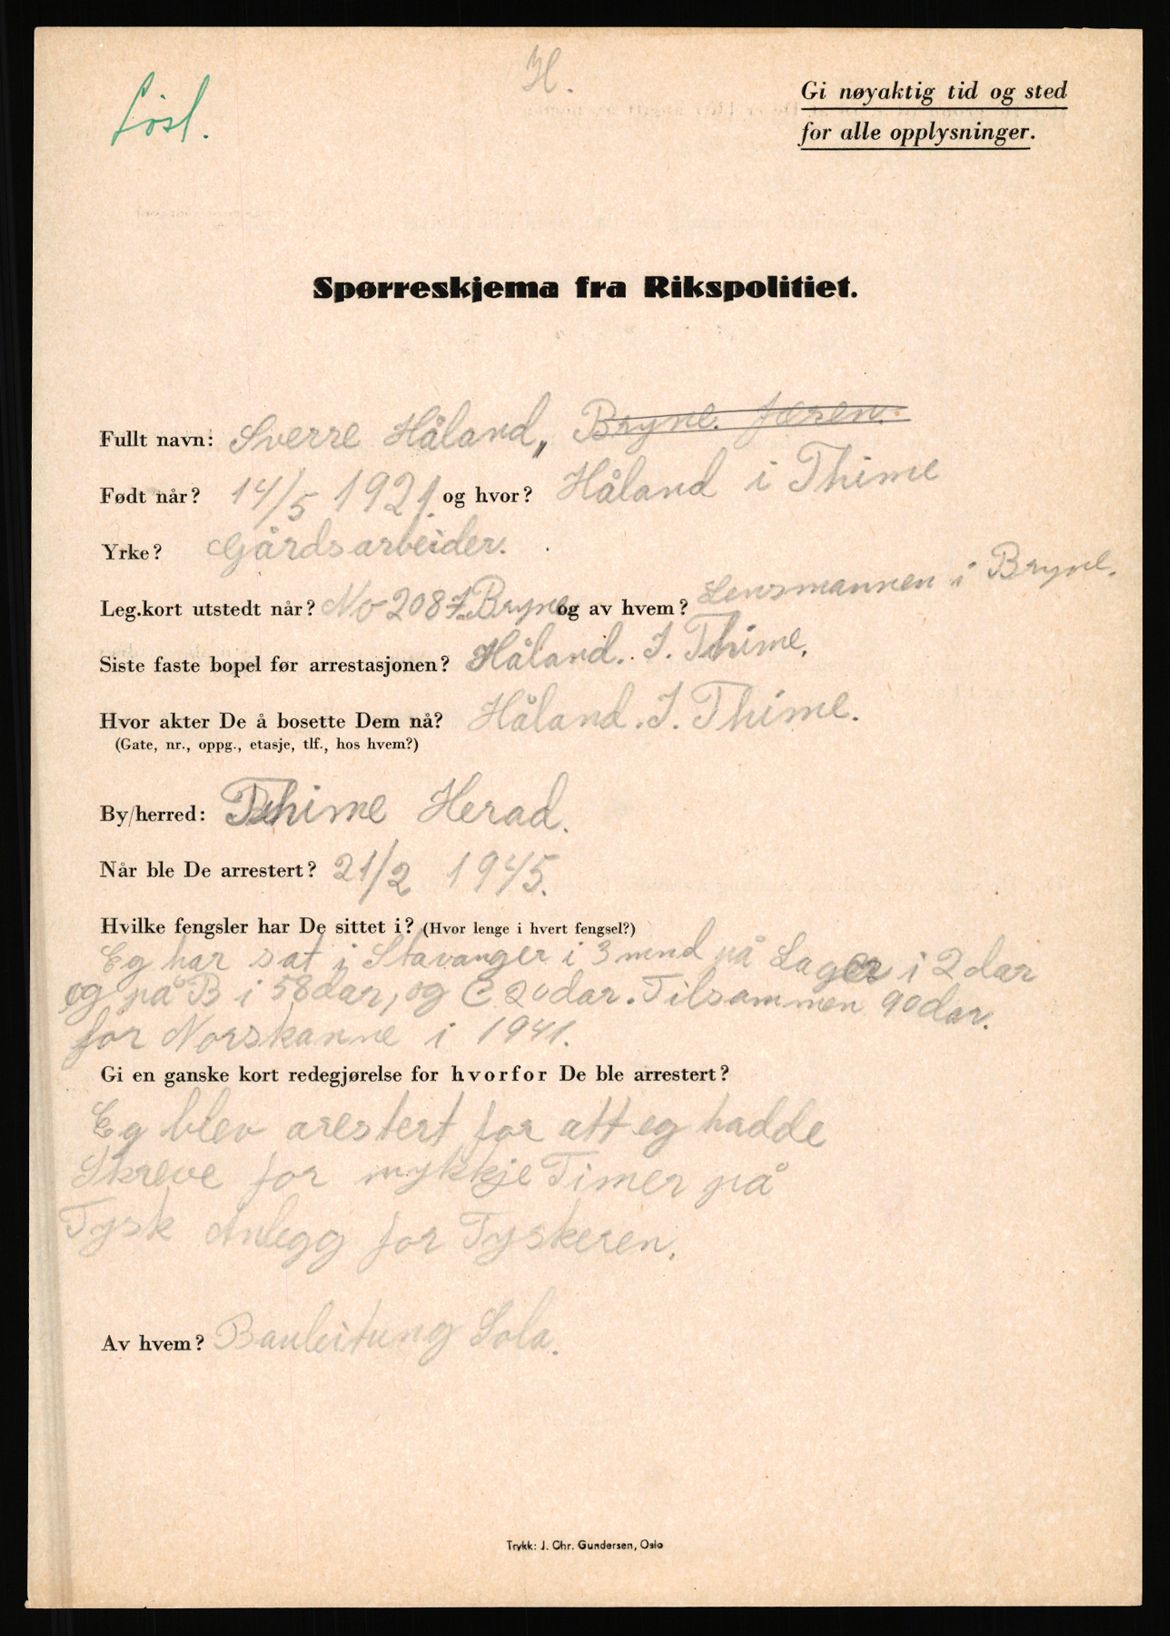 H.
Løsl.
Gi nøyaktig tid og sted
for alle opplysninger.
Spørreskjema fra Rikspolitiet.
Fullt navn: Sverre Håland, Bryne. Jæren.
Født når? 14/5 1921. og hvor? Håland i Thime
Yrke? Gårdsarbeider.
Leg.kort utstedt når? No 208 I. Bryne og av hvem? Lensmannen i Bryne.
Siste faste bopel før arrestasjonen? Håland. I. Thime.
Hvor akter De å bosette Dem nå? Håland. I. Thime.
(Gate, nr., oppg., etasje, tlf., hos hvem?)
By/herred: Thime Herad.
Når ble De arrestert? 21/2 1945.
Hvilke fengsler har De sittet i? (Hvor lenge i hvert fengsel?)
Eg har sat i Stavanger i 3 mnd på Lager i 2 dar
og på B i 58 dar, og C 20 dar. Tilsammen 90 dar.
for Norskanne i 1941.
Gi en ganske kort redegjørelse for hvorfor De ble arrestert?
Eg blev arestert for att eg hadde
Skreve for mykkje Timer på
Tysk Anlegg for Tyskeren.
Av hvem? Bauleitung Sola.
Trykk: J. Chr. Gundersen, Oslo